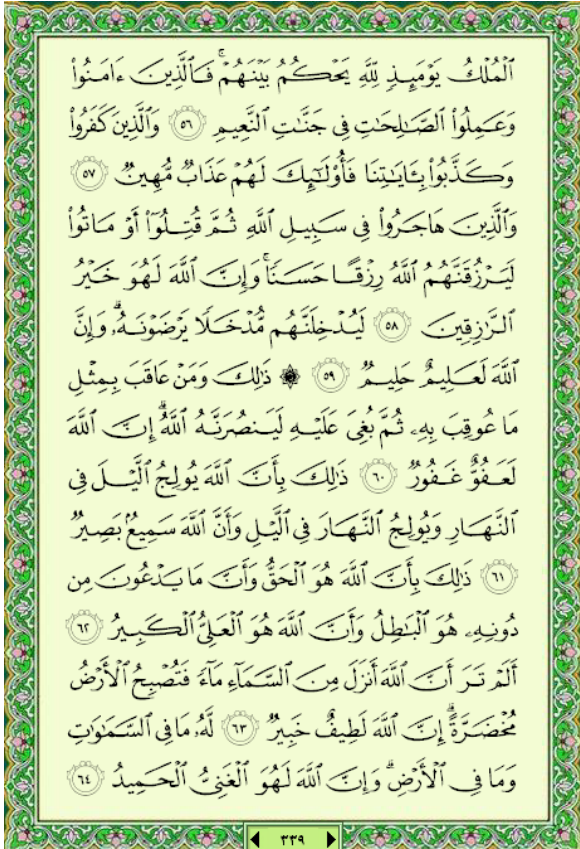 ٱلْمُلْكُ يَوْمَئِذٍ لِّلَّهِ يَحْكُمُ بَيْنَهُمْ ۚ فَٱلَّذِينَ ءَامَنُوا۟
وَعَمِلُوا۟ ٱلصَّٰلِحَٰتِ فِى جَنَّٰتِ ٱلنَّعِيمِ ٥٦ وَٱلَّذِينَ كَفَرُوا۟
وَكَذَّبُوا۟ بِـَٔايَٰتِنَا فَأُو۟لَٰٓئِكَ لَهُمْ عَذَابٌ مُّهِينٌ ٥٧
وَٱلَّذِينَ هَاجَرُوا۟ فِى سَبِيلِ ٱللَّهِ ثُمَّ قُتِلُوٓا۟ أَوْ مَاتُوا۟
لَيَرْزُقَنَّهُمُ ٱللَّهُ رِزْقًا حَسَنًا ۚ وَإِنَّ ٱللَّهَ لَهُوَ خَيْرُ
ٱلرَّٰزِقِينَ ٥٨ لَيُدْخِلَنَّهُم مُّدْخَلًا يَرْضَوْنَهُۥ ۗ وَإِنَّ
ٱللَّهَ لَعَلِيمٌ حَلِيمٌ ٥٩ ۞ ذَٰلِكَ وَمَنْ عَاقَبَ بِمِثْلِ
مَا عُوقِبَ بِهِۦ ثُمَّ بُغِىَ عَلَيْهِ لَيَنصُرَنَّهُ ٱللَّهُ ۗ إِنَّ ٱللَّهَ
لَعَفُوٌّ غَفُورٌ ٦٠ ذَٰلِكَ بِأَنَّ ٱللَّهَ يُولِجُ ٱلَّيْلَ فِى
ٱلنَّهَارِ وَيُولِجُ ٱلنَّهَارَ فِى ٱلَّيْلِ وَأَنَّ ٱللَّهَ سَمِيعٌۢ بَصِيرٌ
٦١ ذَٰلِكَ بِأَنَّ ٱللَّهَ هُوَ ٱلْحَقُّ وَأَنَّ مَا يَدْعُونَ مِن
دُونِهِۦ هُوَ ٱلْبَٰطِلُ وَأَنَّ ٱللَّهَ هُوَ ٱلْعَلِىُّ ٱلْكَبِيرُ ٦٢
أَلَمْ تَرَ أَنَّ ٱللَّهَ أَنزَلَ مِنَ ٱلسَّمَآءِ مَآءً فَتُصْبِحُ ٱلْأَرْضُ
مُخْضَرَّةً ۗ إِنَّ ٱللَّهَ لَطِيفٌ خَبِيرٌ ٦٣ لَّهُۥ مَا فِى ٱلسَّمَٰوَٰتِ
وَمَا فِى ٱلْأَرْضِ ۗ وَإِنَّ ٱللَّهَ لَهُوَ ٱلْغَنِىُّ ٱلْحَمِيدُ ٦٤
٣٣٩